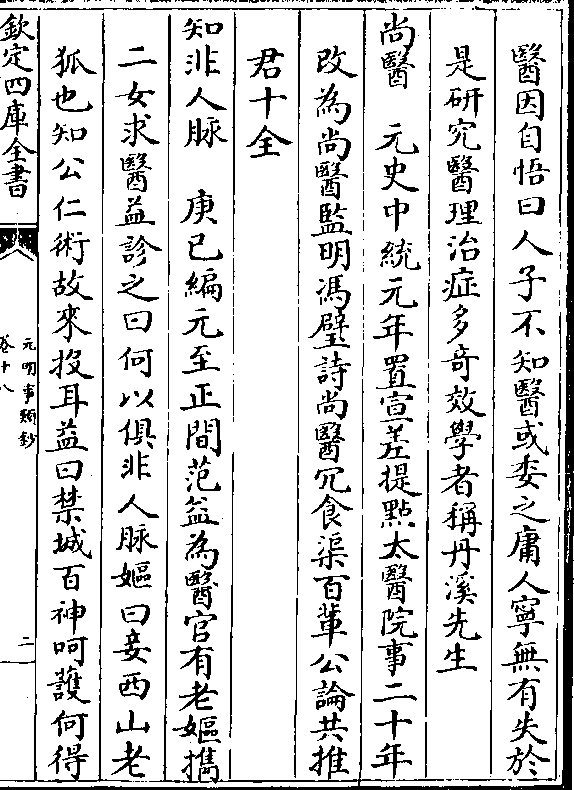 醫因自悟曰人子不知醫或委之庸人寧無有失於
是研究醫理治症多奇效學者稱丹溪先生
尚醫　元史中統元年置宣差提點太醫院事二十年
改為尚醫監明馮璧詩尚醫冗食渠百輩公論共推
君十全
知非人脈　庚巳編元至正間范益為醫官有老嫗攜
二女求醫益診之曰何以俱非人脈嫗曰妾西山老
狐也知公仁術故來投耳益曰禁城百神呵護何得
欽定四庫全書
元明事類鈔
卷十八
二